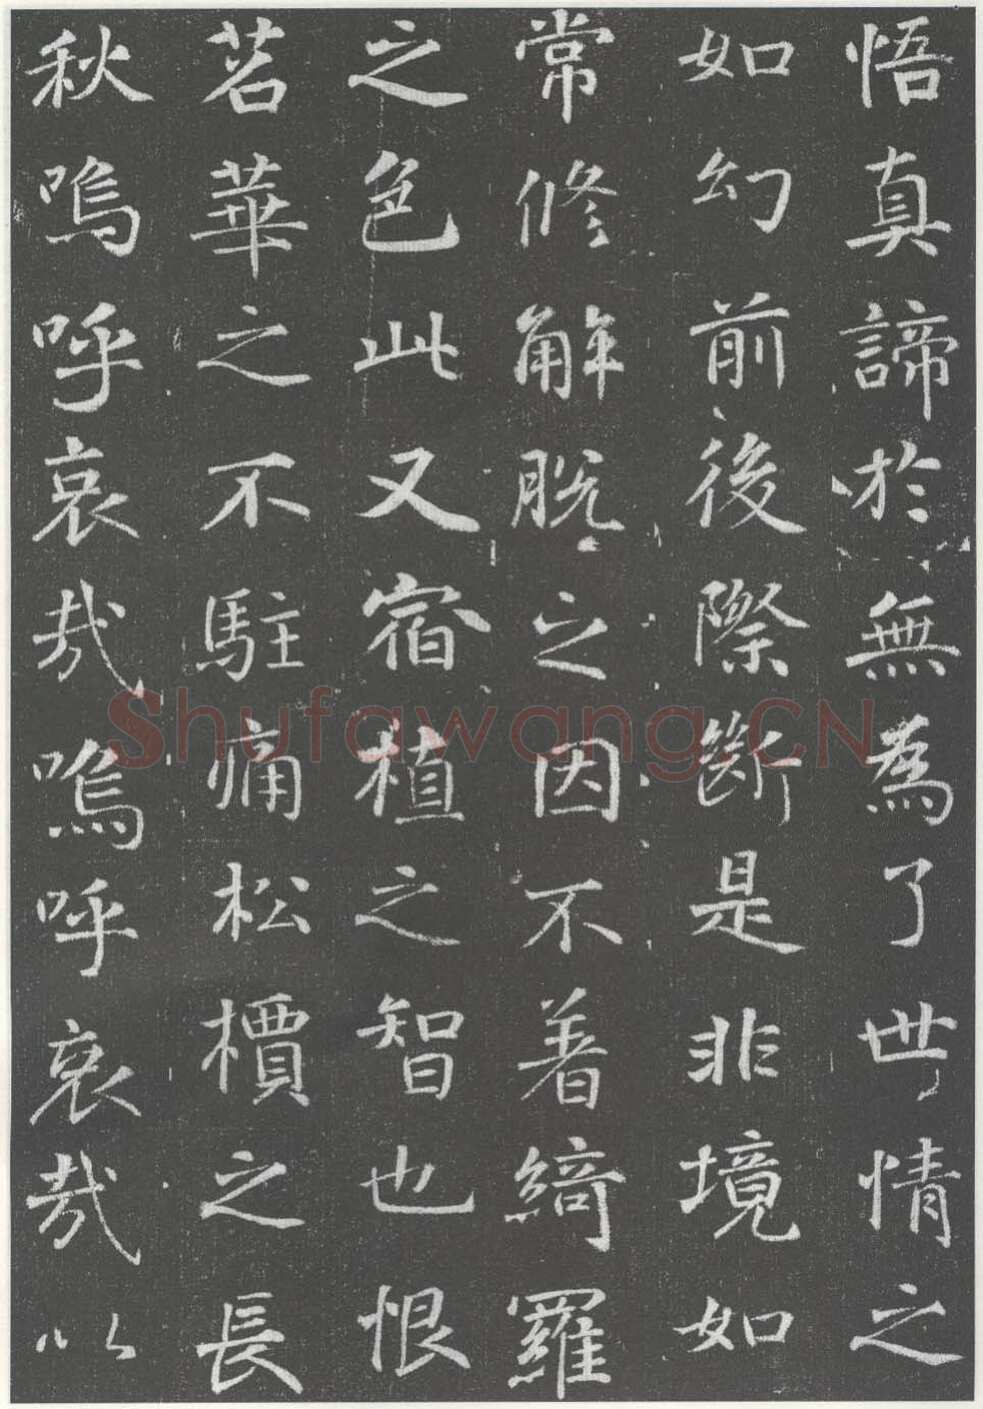 悟真諦於無為了世情之
如幻前後際斷是非境如
常修解脫之因不著綺羅
之色此又宿植之智也恨
茗華之不駐痛松檟之長
秋嗚呼哀哉嗚呼哀哉以
Shufawang.CN